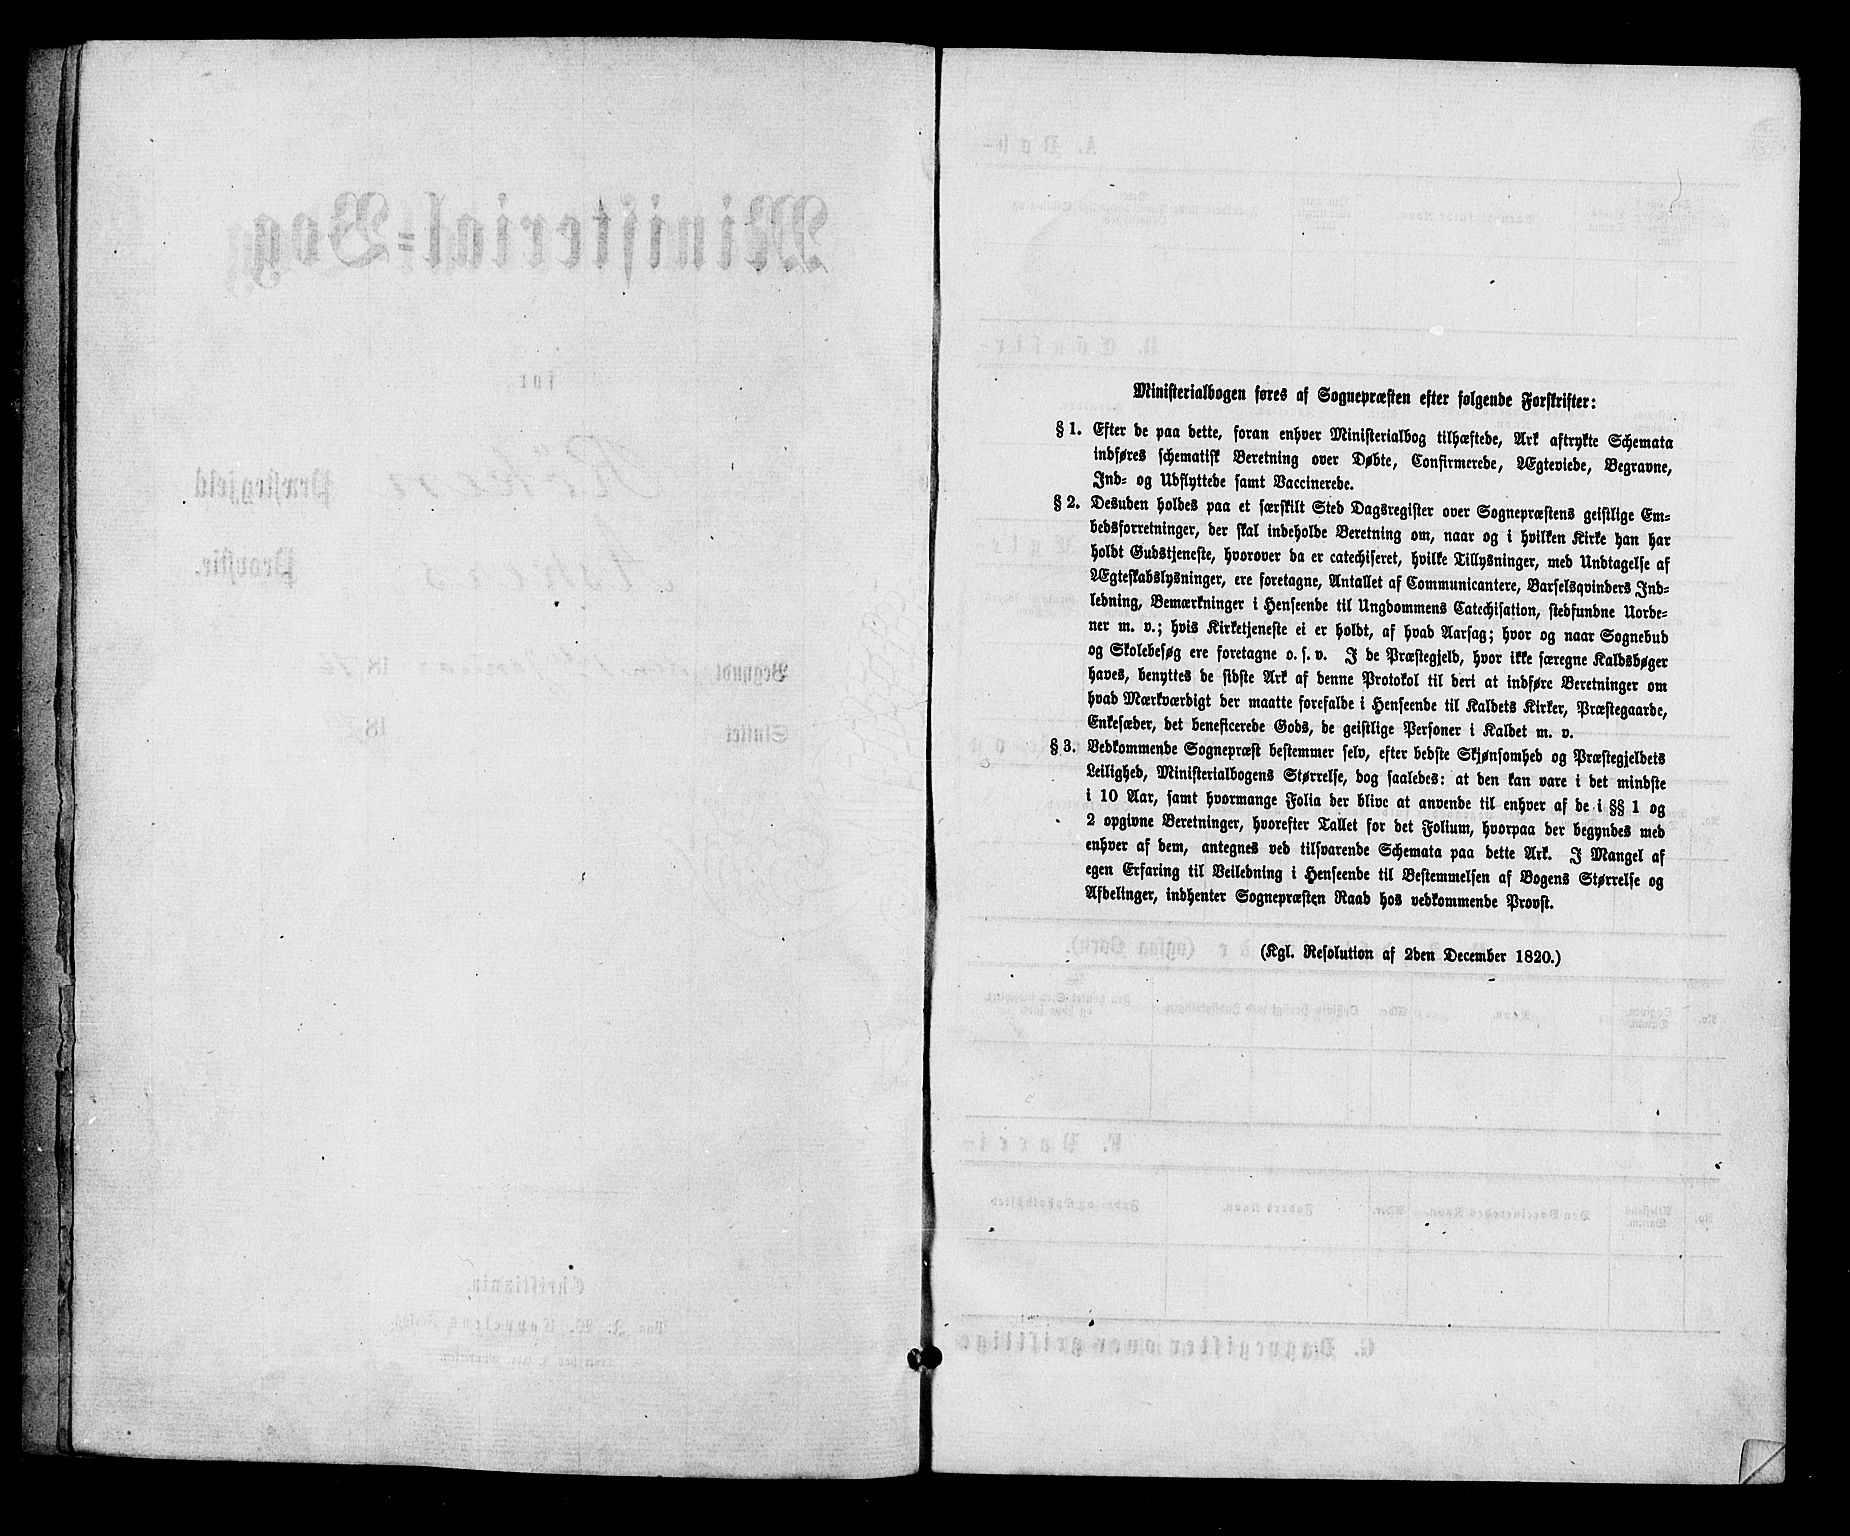 Ministerialbogen føres af Sognepræsten efter følgende Forskrifter:
§ 1. Efter de paa dette, foran enhver Ministerialbog tilhæftede, Ark aftrykte Schemata
indføres schematisk Beretning over Døbte, Confirmerede, Ægteviede, Begravne,
Ind- og Udflyttede samt Vaccinerede.
§ 2. Desuden holdes paa et særskilt Sted Dagsregister over Sognepræstens geistlige Em-
bedsforretninger, der skal indeholde Beretning om, naar og i hvilken Kirke han har
holdt Gudstjeneste, hvorover da er catechiseret, hvilke Tillysninger, med Undtagelse af
Ægteskabslysninger, ere foretagne, Antallet af Communicantere, Barselsqvinders Ind-
ledning, Bemærkninger i Henseende til Ungdommens Catechisation, stedfundne Uorde-
ner m. v.; hvis Kirketjeneste ei er holdt, af hvad Aarsag; hvor og naar Sognebud
og Skolebesøg ere foretagne o. s. v. I de Præstegjeld, hvor ikke særegne Kaldsbøger
haves, benyttes de sidste Ark af denne Protokol til deri at indføre Beretninger om
hvad Mærkværdigt der maatte forefalde i Henseende til Kaldets Kirker, Præstegaarde,
Enkesæder, det beneficerede Gods, de geistlige Personer i Kaldet m. v.
§ 3. Vedkommende Sognepræst bestemmer selv, efter bedste Skjønsomhed og Præstegjeldets
Leilighed, Ministerialbogens Størrelse, dog saaledes: at den kan vare i det mindste
i 10 Aar, samt hvormange Folia der blive at anvende til enhver af de i §§ 1 og
2 opgivne Beretninger, hvorefter Tallet for det Folium, hvorpaa der begyndes med
enhver af dem, antegnes ved tilsvarende Schemata paa dette Ark. I Mangel af
egen Erfaring til Veiledning i Henseende til Bestemmelsen af Bogens Størrelse og
Afdelinger, indhenter Sognepræsten Raad hos vedkommende Provst.
(Kgl. Resolution af 2den December 1820.)